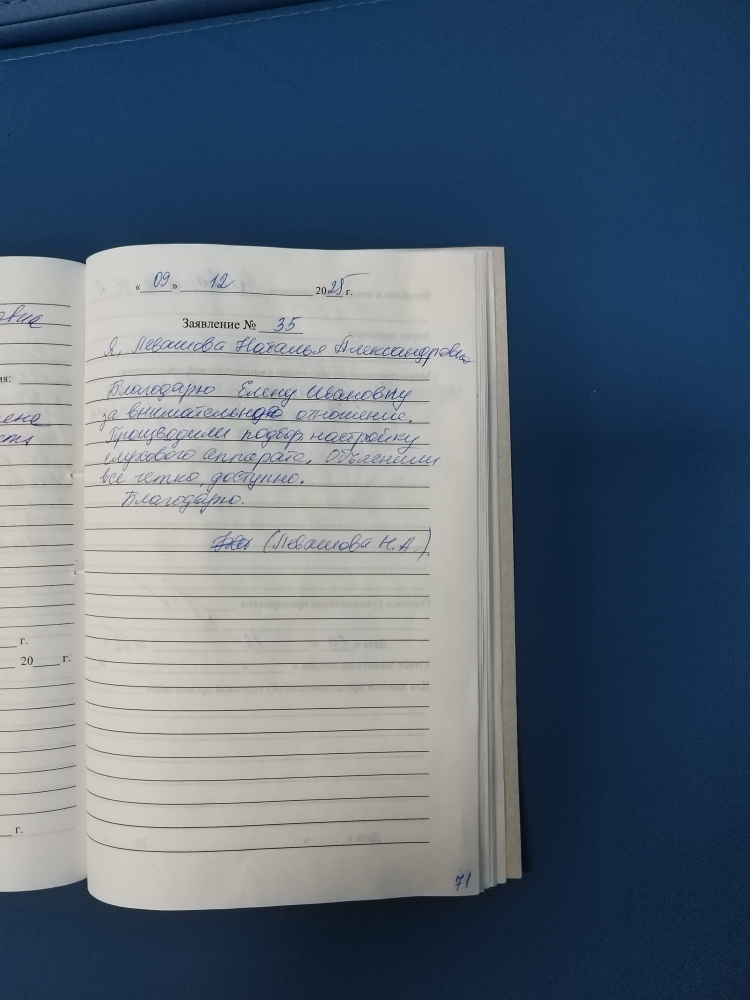 « 09 » 12 2025 г.
Заявление № 35
Я, Левашова Наталья Александровна
Благодарю Елену Ивановну
за внимательное отношение.
Производили подбор, настройку
слухового аппарата. Объяснили
все четко, доступно.
Благодарю.
(Левашова Н.А.)
71
вна
ия:
ена
г.
20 г.
г.